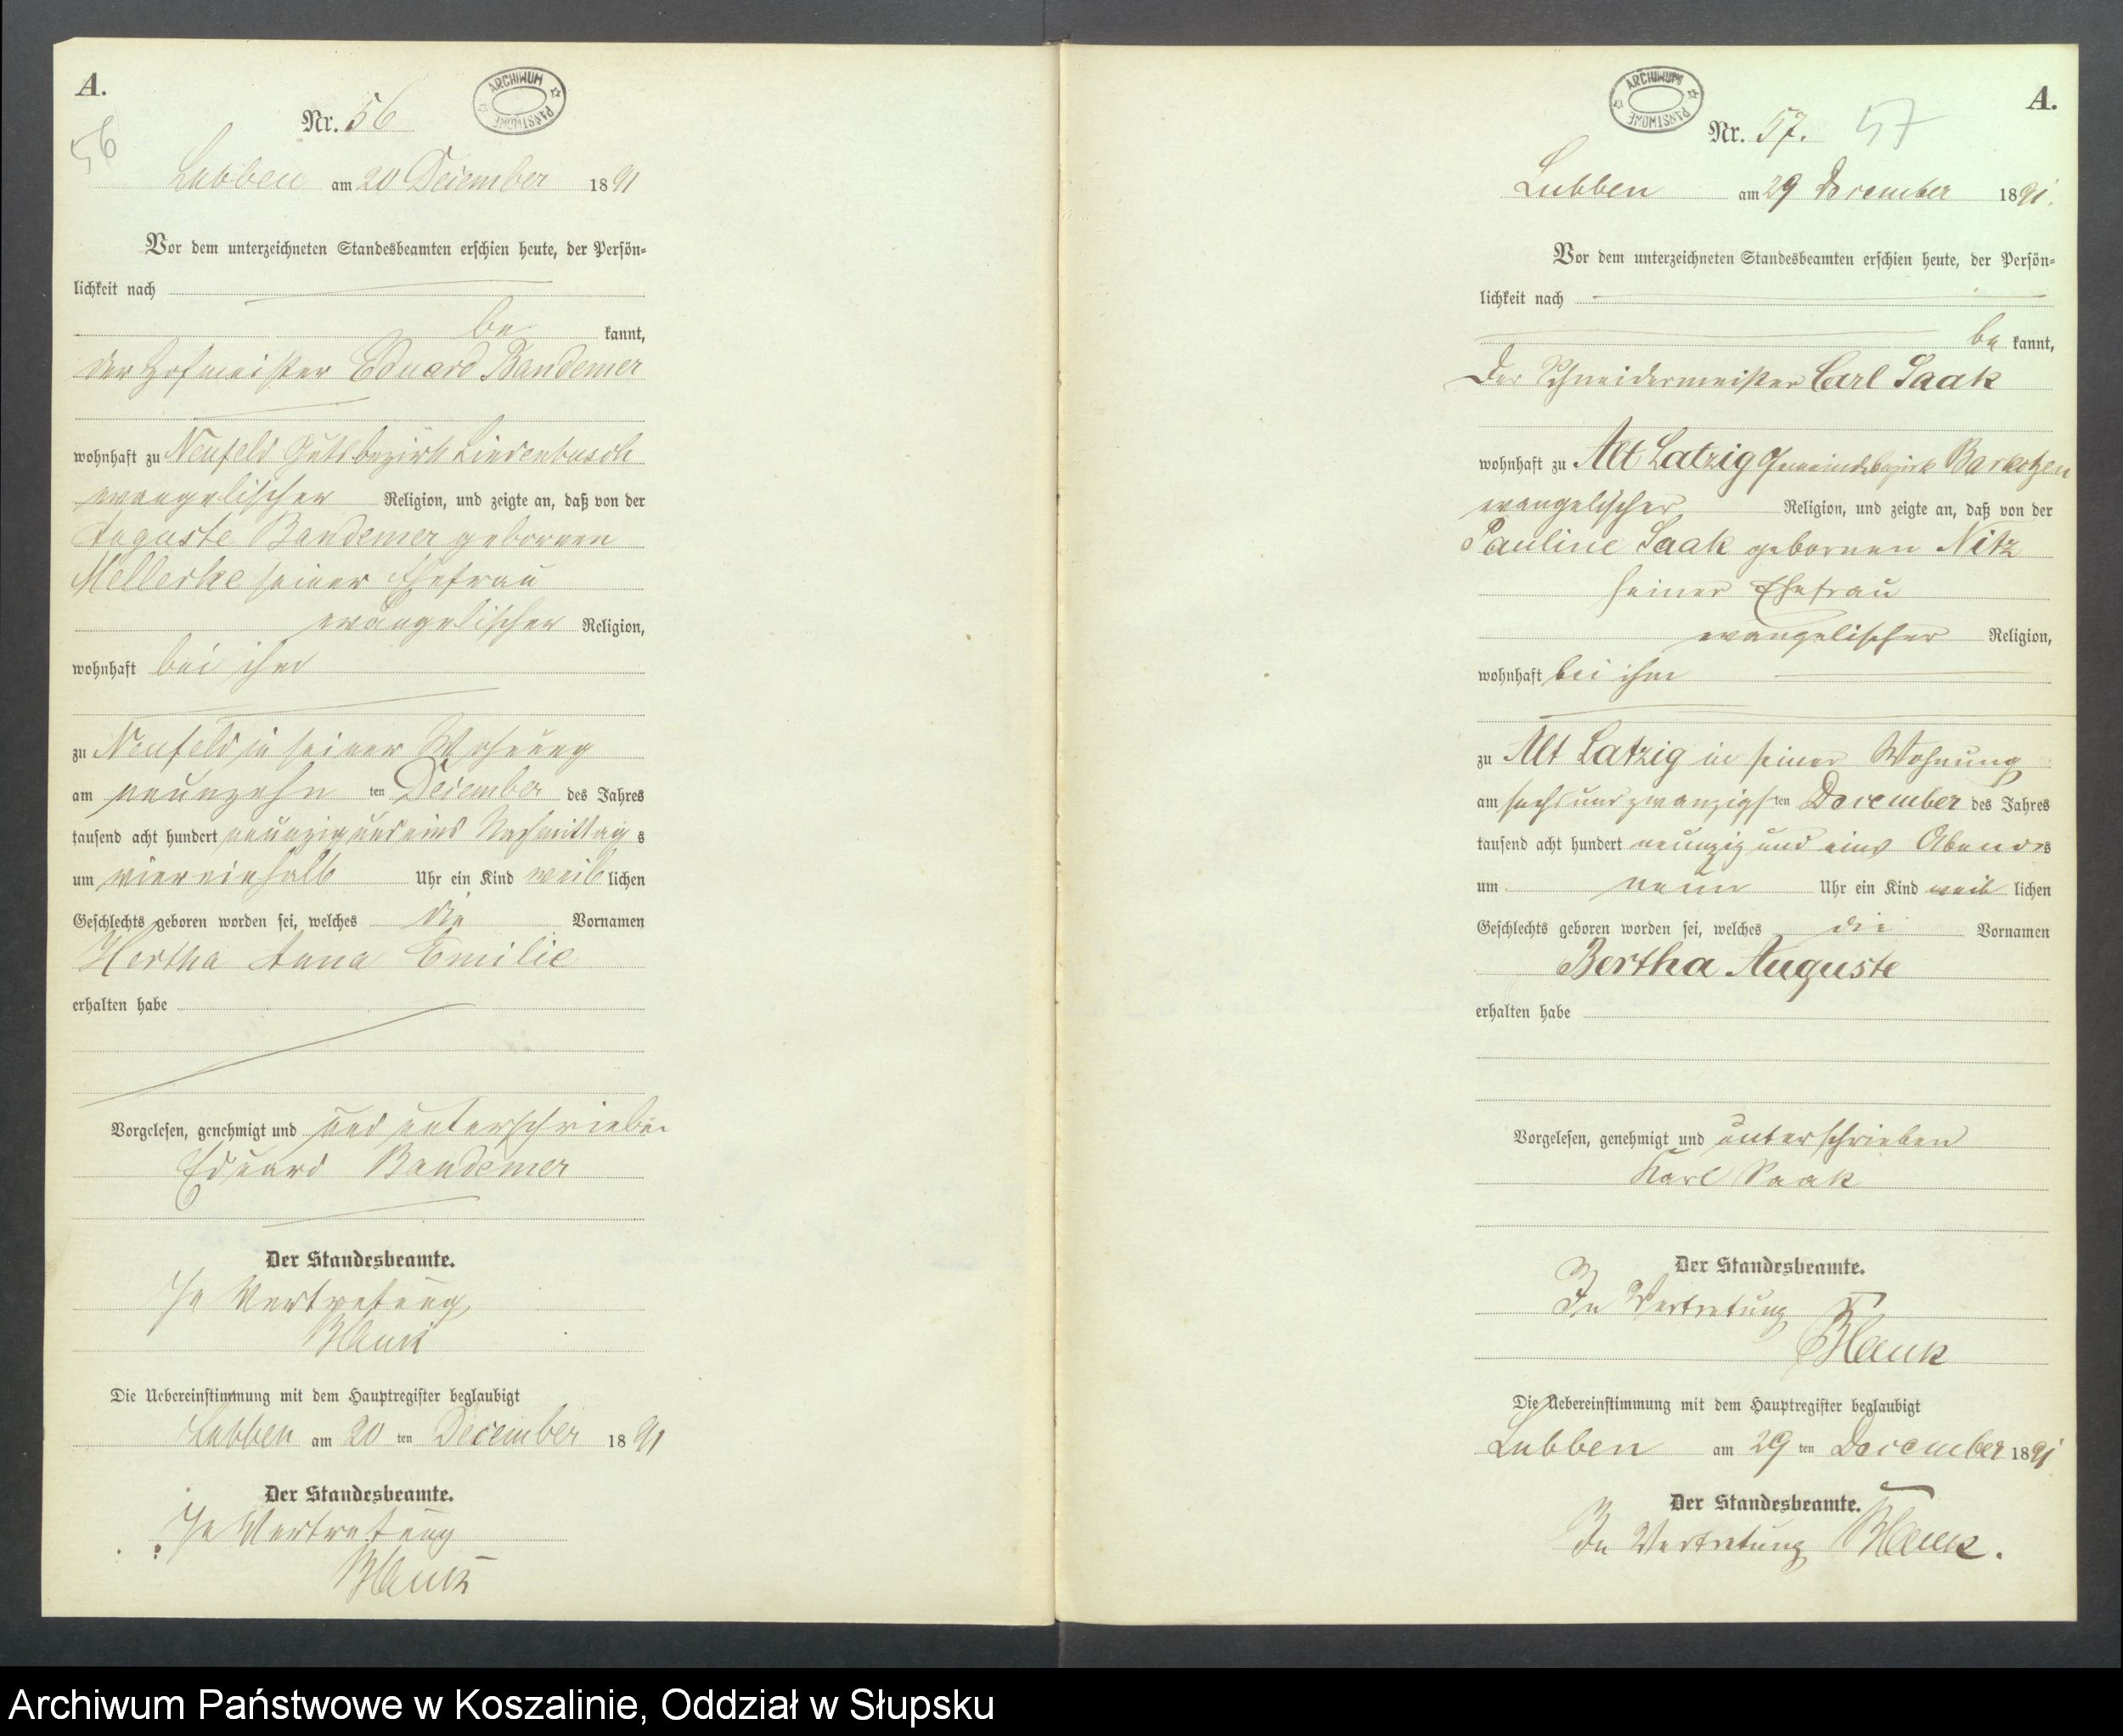 A.
Nr. 56
ARCHIWUM PAŃSTWOWE
56
Lubben am 20 December 1891
Vor dem unterzeichneten Standesbeamten erschien heute, der Persön-
lichkeit nach
be kannt,
der Hofmeister Eduard Bandemer
wohnhaft zu Neufeld Gutsbezirk Lindenbusch
evangelischer Religion, und zeigte an, daß von der
Auguste Bandemer geborenen
seiner Ehefrau
evangelischer Religion,
wohnhaft bei ihm
zu Neufeld in seiner Wohnung
am neunzehn ten December des Jahres
tausend acht hundert neunzig und eins Nachmittag s
um viereinhalb Uhr ein Kind weib lichen
Geschlechts geboren worden sei, welches die Vornamen
Hertha Anna Emilie
erhalten habe
Vorgelesen, genehmigt und und unterschrieben
Eduard Bandemer
Der Standesbeamte.
In Vertretung
Blank
Die Uebereinstimmung mit dem Hauptregister beglaubigt
Lubben am 20 ten December 1891
Der Standesbeamte.
In Vertretung
Blank
A.
ARCHIWUM PAŃSTWOWE
Nr. 57. 57
Lubben am 29 December 1891.
Vor dem unterzeichneten Standesbeamten erschien heute, der Persön-
lichkeit nach
be kannt,
Der Schneidermeister Carl Saak
wohnhaft zu Alt Latzig Gemeindebezirk Barkotzen
evangelischer Religion, und zeigte an, daß von der
Pauline Saak geborenen Nitz
seiner Ehefrau
evangelischer Religion,
wohnhaft bei ihm
zu Alt Latzig in seiner Wohnung
am sechs und zwanzigs ten December des Jahres
tausend acht hundert neunzig und eins Abends
um neun Uhr ein Kind weib lichen
Geschlechts geboren worden sei, welches die Vornamen
Bertha Auguste
erhalten habe
Vorgelesen, genehmigt und unterschrieben
Karl Saak
Der Standesbeamte.
In Vertretung
Blank
Die Uebereinstimmung mit dem Hauptregister beglaubigt
Lubben am 29 ten December 1891
Der Standesbeamte.
In Vertretung Blank.
Archiwum Państwowe w Koszalinie, Oddział w Słupsku